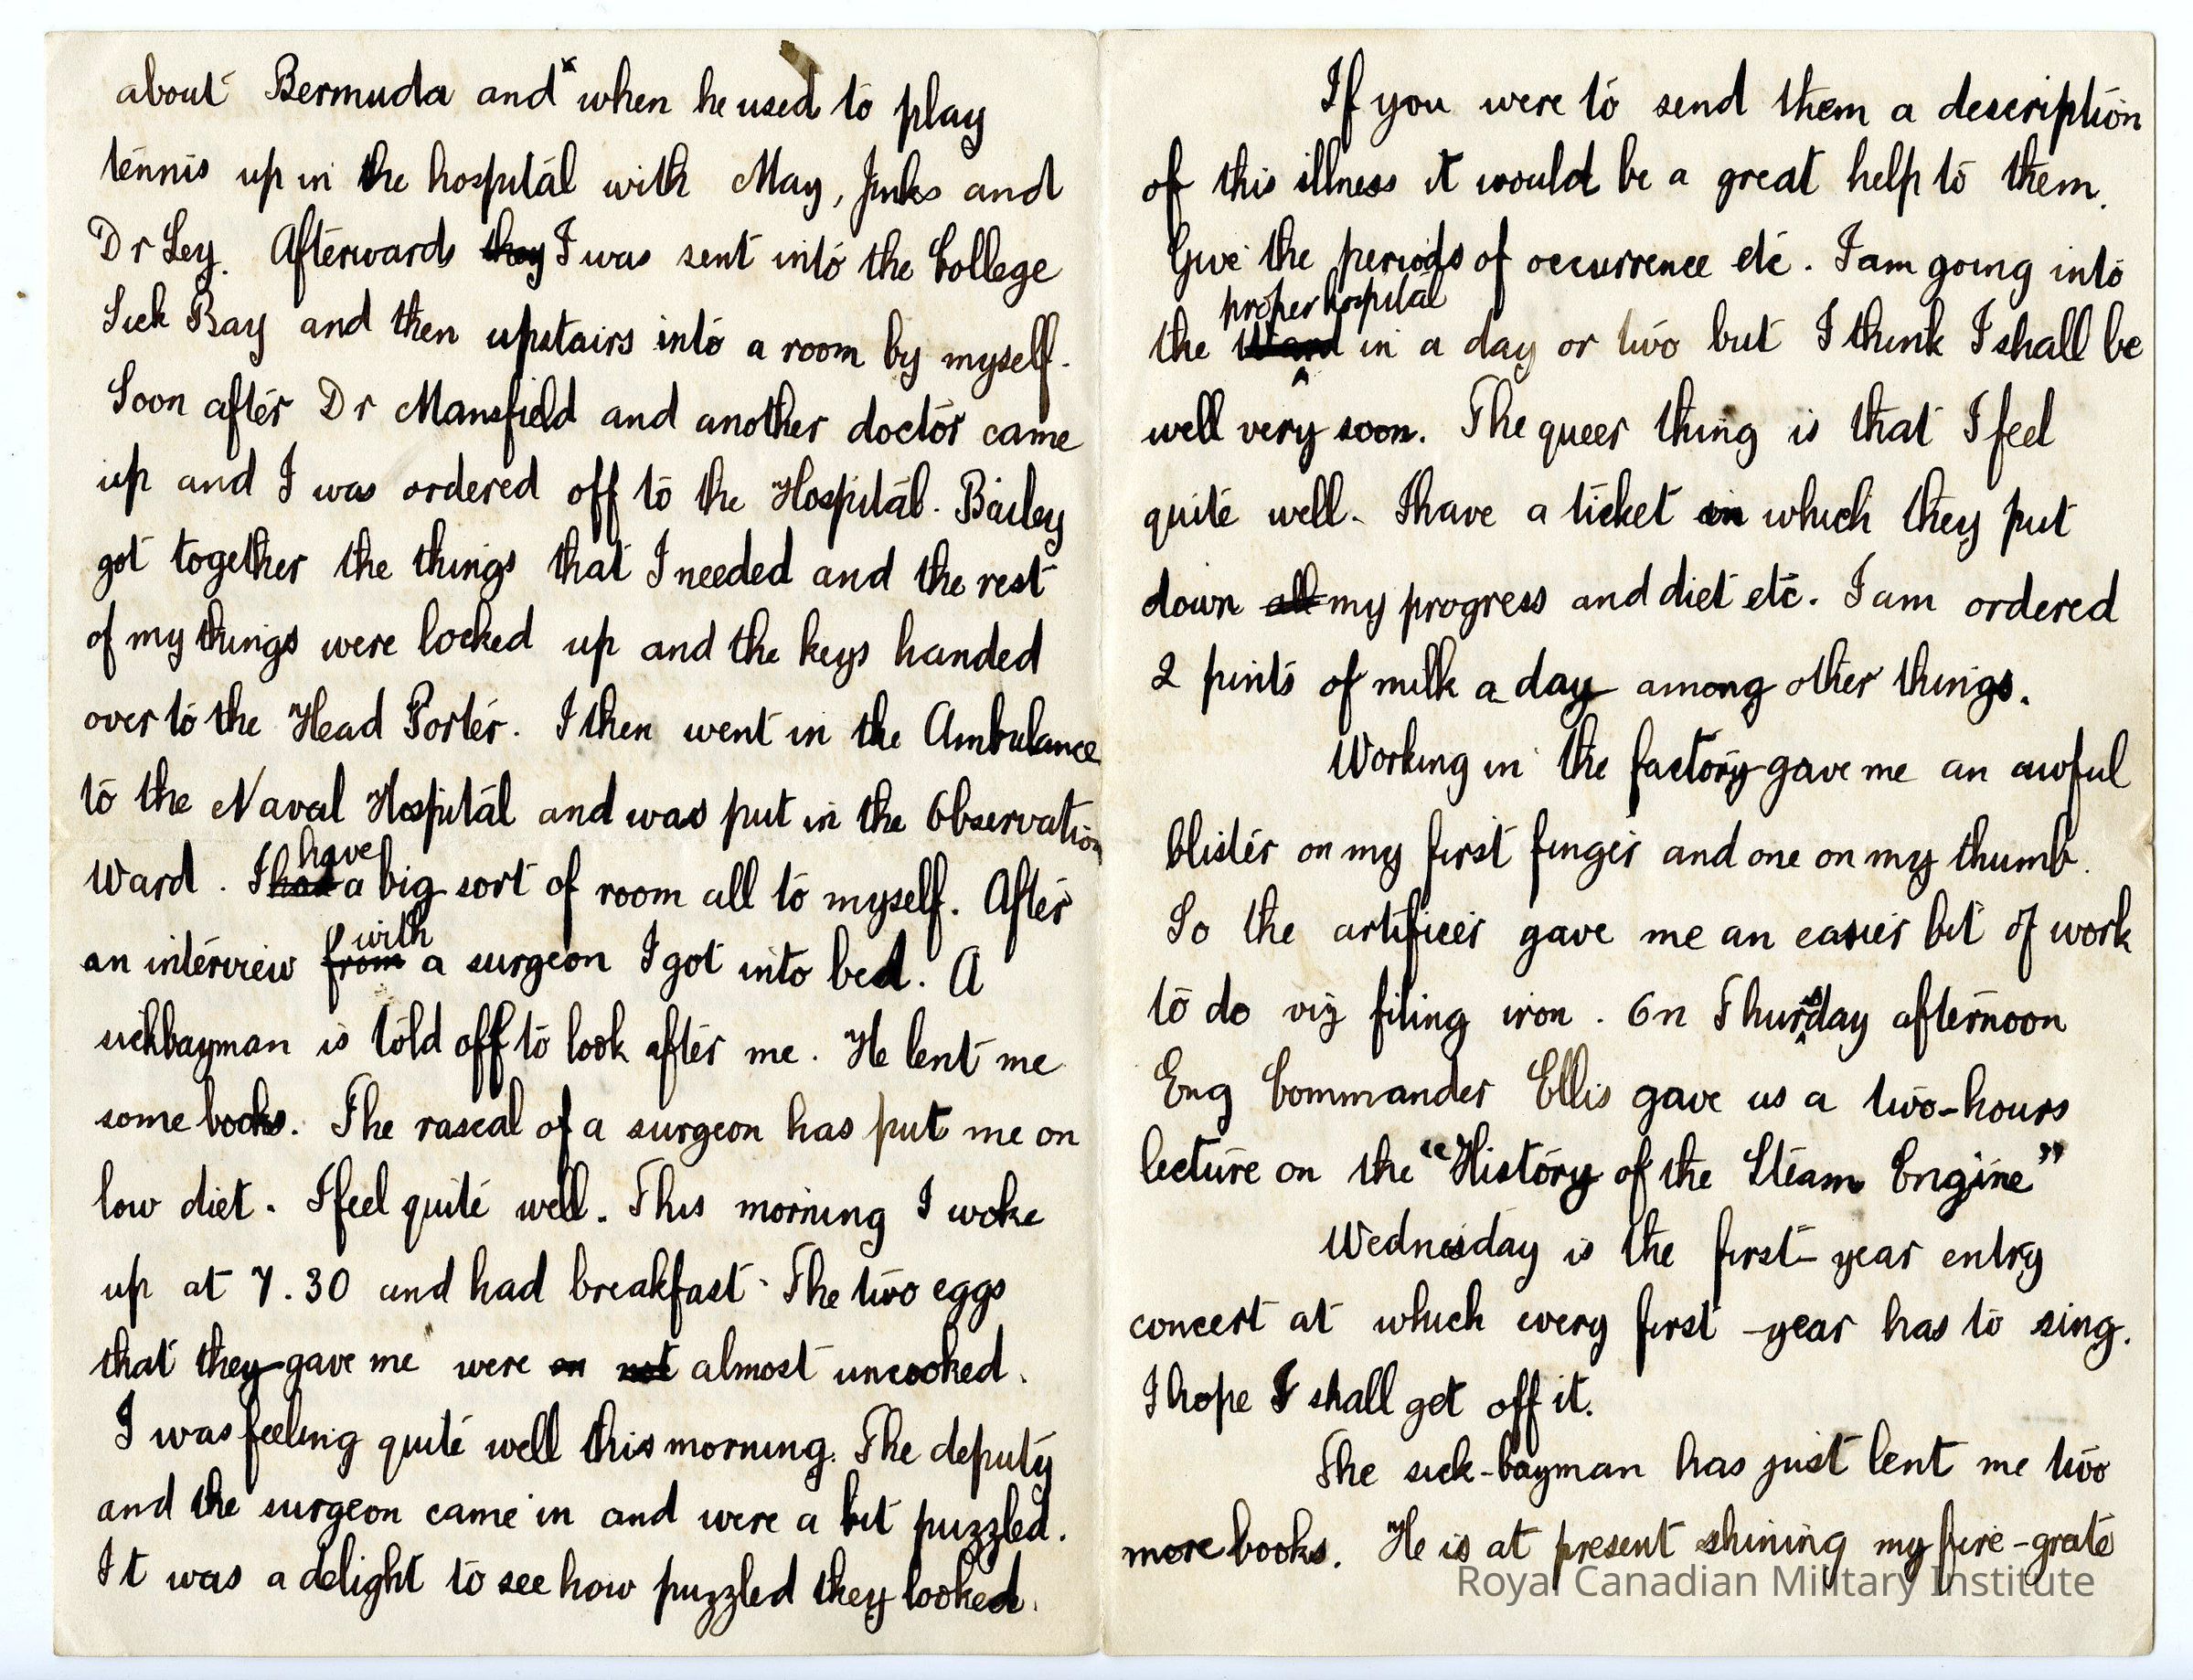 about Bermuda and x when he used to play
tennis up in the hospital with May, Jinks and
Dr Ley. Afterwards they I was sent into the College
Sick Bay and then upstairs into a room by myself.
Soon after Dr Mansfield and another doctor came
up and I was ordered off to the Hospital. Bailey
got together the things that I needed and the rest
of my things were locked up and the keys handed
over to the Head Porter. I then went in the Ambulance
to the Naval Hospital and was put in the Observation
have
Ward. I had a big sort of room all to myself. After
with
an interview from a surgeon I got into bed. A
sickbayman is told off to look after me. He lent me
some books. The rascal of a surgeon has put me on
low diet. I feel quite well. This morning I woke
up at 7.30 and had breakfast. The two eggs
that they gave me were on not almost uncooked.
I was feeling quite well this morning. The deputy
and the surgeon came in and were a bit puzzled.
It was a delight to see how puzzled they looked.
If you were to send them a description
of this illness it would be a great help to them.
Give the periods of occurrence etc. I am going into
proper hospital
the Ward in a day or two but I think I shall be
well very soon. The queer thing is that I feel
quite well. I have a ticket in which they put
down all my progress and diet etc. I am ordered
2 pints of milk a day among other things.
Working in the factory gave me an awful
blister on my first finger and one on my thumb.
So the artificer gave me an easier bit of work
to do viz filing iron. On Thursday afternoon
Eng Commander Ellis gave us a two-hours
lecture on the "History of the Steam Engine"
Wednesday is the first-year entry
concert at which every first-year has to sing.
I hope I shall get off it.
The sick-bayman has just lent me two
more books. He is at present shining my fire-grate
Royal Canadian Military Institute